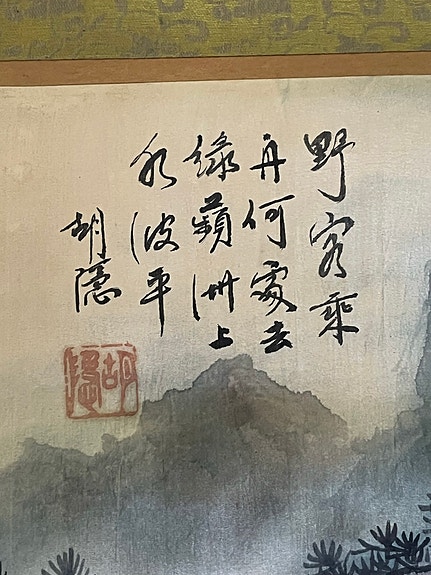 野客乘
舟何處去
綠蘋洲上
水波平
胡隱
胡隱